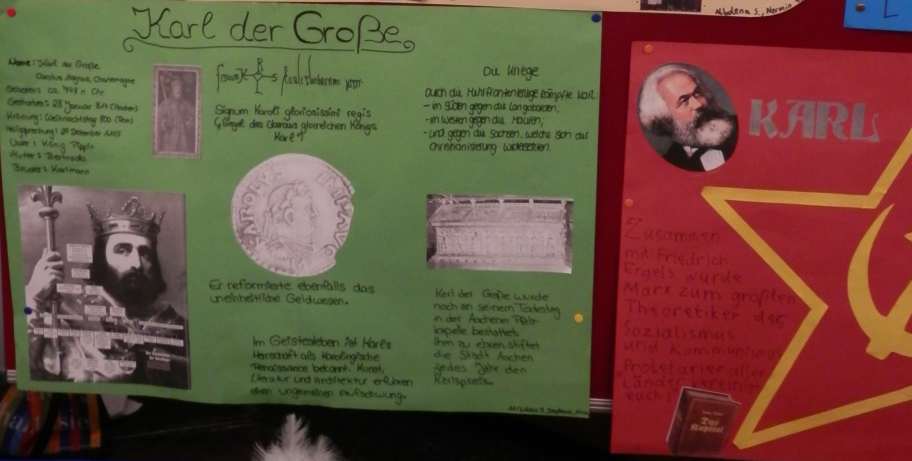 Albdena S., Nermin
Karl der Große
Name: Karl der Große
Carolus Magnus, Charlemagne
Geboren: ca. 748 n. Chr.
Gestorben: 28 Januar 814 (Aachen)
Krönung: Weihnachtstag 800 (Rom)
Heiligsprechung: 29 Dezember 1165
Vater: König Pippin
Mutter: Bertrada
Bruder: Karlmann
Signum Karoli gloriosissimi regis
(Siegel des überaus glorreichen Königs
Karl)
Die Kriege
Durch die Mehrfrontenkriege kämpfte Karl:
- im Süden gegen die Langobarden,
- im Westen gegen die Mauren,
- und gegen die Sachsen, welche sich der
Christianisierung widersetzten.
KAROLVS IMP AVG
Er reformierte ebenfalls das
uneinheitliche Geldwesen.
Im Geistesleben ist Karls
Herrschaft als Karolingische
Renaissance bekannt. Kunst,
Literatur und Architektur erfuhren
einen ungemeinen Aufschwung.
Karl der Große wurde
noch an seinem Todestag
in der Aachener Pfalz-
kapelle bestattet.
Ihm zu ehren stiftet
die Stadt Aachen
jedes Jahr den
Karlspreis.
KARL
Zusammen
mit Friedrich
Engels wurde
Marx zum größten
Theoretiker des
Sozialismus
und Kommunismus
Proletarier aller
Länder vereinigt
euch!
Das
Kapital